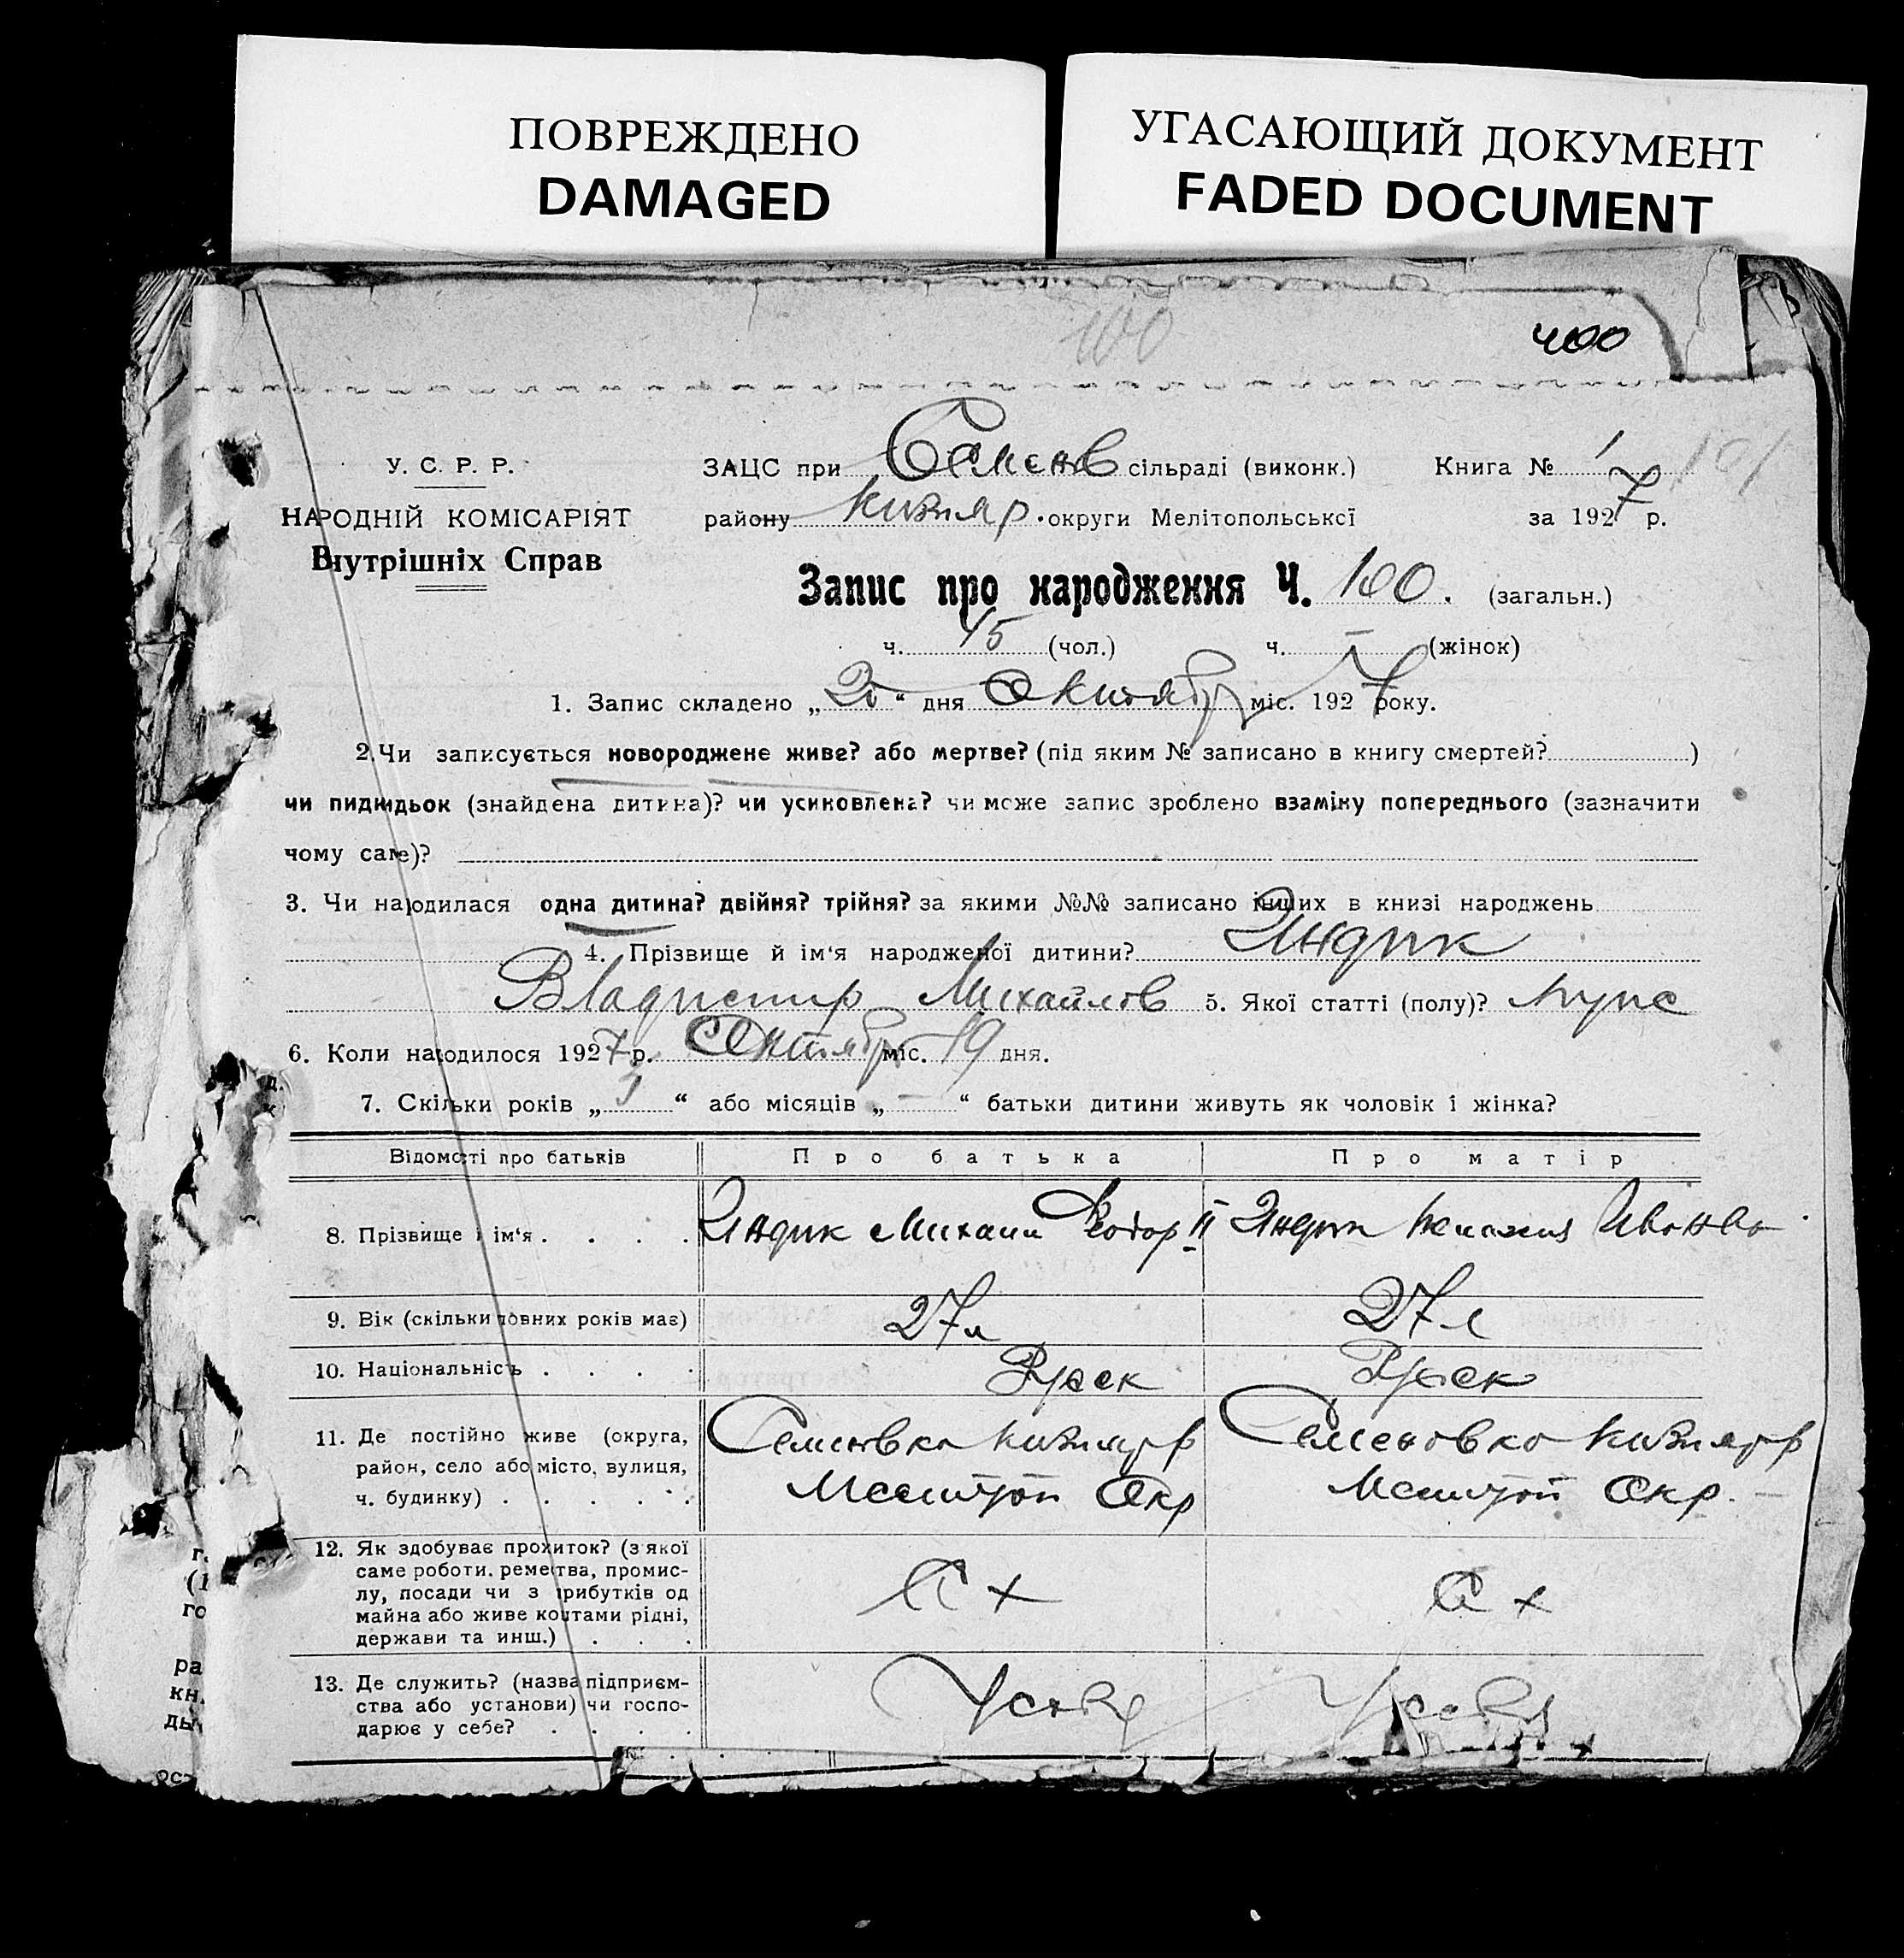 ПОВРЕЖДЕНО
DAMAGED
УГАСАЮЩИЙ ДОКУМЕНТ
FADED DOCUMENT
100
400
У. С. Р. Р.
НАРОДНІЙ КОМІСАРІЯТ
Внутрішніх Справ
ЗАЦС при Семенов сільраді (виконк.) Книга № 1 101
району Кизияр. округи Мелітопольської за 1927 р.
Запис про народження Ч. 100. (загальн.)
ч. 45 (чол.) ч. – (жінок)
1. Запис складено „20“ дня Октября міс. 1927 року.
2. Чи записується новороджене живе? або мертве? (під яким № записано в книгу смертей? )
чи пидкидьок (знайдена дитина)? чи усиновлена? чи може запис зроблено взаміну попереднього (зазначити
чому саме)?
3. Чи народилася одна дитина? двійня? трійня? за якими №№ записано інших в книзі народжень
4. Прізвище й ім‘я народженої дитини? Индик
Владимир Михайлов 5. Якої статті (полу)? муже
6. Коли народилося 1927 р. Октября міс. 19 дня.
7. Скільки років „3“ або місяців „—“ батьки дитини живуть як чоловік і жінка?
Відомості про батьків Про батька Про матір
8. Прізвище і ім‘я . . . . Индик Михаил Феодор II Индик Ивановна
9. Вік (скільки повних років має) 27 л 27 л
10. Національність . . . Русск Русск
11. Де постійно живе (округа, Семеновка Кизияр р Семеновка Кизияр р
район, село або місто, вулиця, Мелитоп Окр Мелитоп Окр. –
ч. будинку) . . . . . .
12. Як здобуває прожиток? (з якої
саме роботи, ремества, промис-
лу, посади чи з прибутків од С х С х
майна або живе коштами рідні,
держави та инш.) . . .
13. Де служить? (назва підприєм-
ства або установи) чи госпо- У себя У себя
дарює у себе? . . . .